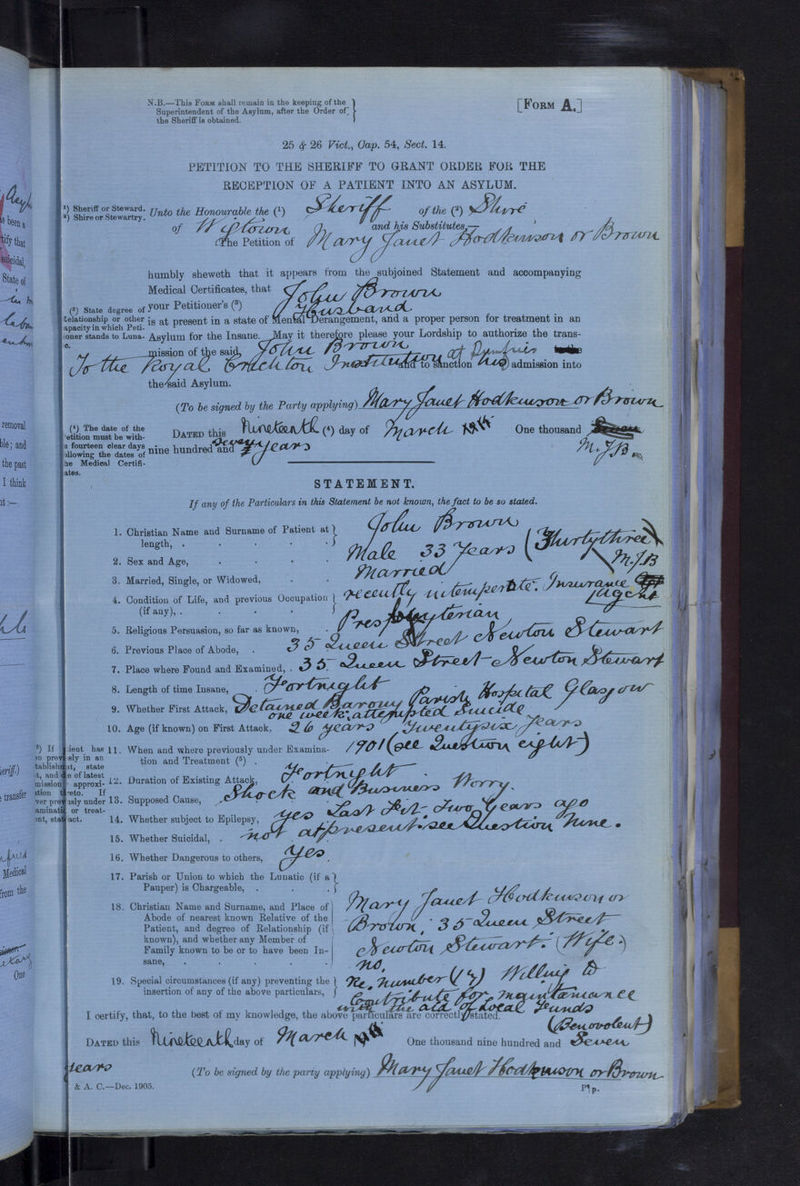 N.B.—This Form shall remain in the keeping of the
Superintendent of the Asylum, after the Order of
the Sheriff is obtained.
[Form A.]
25 & 26 Vict., Cap. 54, Sect. 14.
PETITION TO THE SHERIFF TO GRANT ORDER FOR THE
RECEPTION OF A PATIENT INTO AN ASYLUM.
¹) Sheriff or Steward.
²) Shire or Stewartry.
Unto the Honourable the (¹) Sheriff of the (²) Shire
of Wigtown and his Substitutes,
The Petition of Mary Janet Hodkinson or Brown
humbly sheweth that it appears from the subjoined Statement and accompanying
Medical Certificates, that John Brown
(³) State degree of
Relationship or other
capacity in which Peti-
ioner stands to Luna-
c.
your Petitioner's (³) Husband
is at present in a state of Mental Derangement, and a proper person for treatment in an
Asylum for the Insane. May it therefore please your Lordship to authorize the trans-
mission of the said John Brown
To the Royal Crichton Institution at Dumfries
and to sanction his admission into
the said Asylum.
(To be signed by the Party applying) Mary Janet Hodkinson or Brown
(⁴) The date of the
etition must be with-
n fourteen clear days
ollowing the dates of
he Medical Certifi-
ates.
Dated this Nineteenth (⁴) day of March One thousand
nine hundred and Seven years M.J.B.
STATEMENT.
If any of the Particulars in this Statement be not known, the fact to be so stated.
1. Christian Name and Surname of Patient at
length, John Brown
2. Sex and Age, Male 33 Years (Thirtythree) M.J.B
3. Married, Single, or Widowed, Married
4. Condition of Life, and previous Occupation
(if any), recently intemperate. Insurance Agent
5. Religious Persuasion, so far as known, Presbyterian
6. Previous Place of Abode, 35 Queen Street Newton Stewart
7. Place where Found and Examined, 35 Queen Street Newton Stewart
8. Length of time Insane, Fortnight
9. Whether First Attack, Detained Barony Parish Hospital Glasgow
one week. attempted Suicide
10. Age (if known) on First Attack, 26 years Twentysix Years
11. When and where previously under Examina-
tion and Treatment (⁵) 1901 (see Question eight)
12. Duration of Existing Attack, Fortnight
13. Supposed Cause, Shock and Business Worry.
14. Whether subject to Epilepsy, yes Last Fit Two Years ago
15. Whether Suicidal, not at present. see Question Nine.
16. Whether Dangerous to others, Yes.
17. Parish or Union to which the Lunatic (if a
Pauper) is Chargeable,
18. Christian Name and Surname, and Place of
Abode of nearest known Relative of the
Patient, and degree of Relationship (if
known), and whether any Member of
Family known to be or to have been In-
sane,
Mary Janet Hodkinson or
Brown, 35 Queen Street
Newton Stewart. (Wife.)
no.
19. Special circumstances (if any) preventing the
insertion of any of the above particulars,
Re. number (17) Willing to
Contribute for maintainance
with the aid of Local Funds
(Benovolent)
I certify, that, to the best of my knowledge, the above particulars are correctly stated.
Dated this Nineteenth day of March One thousand nine hundred and Seven
years
(To be signed by the party applying) Mary Janet Hodkinson or Brown
& A. C.—Dec. 1905.